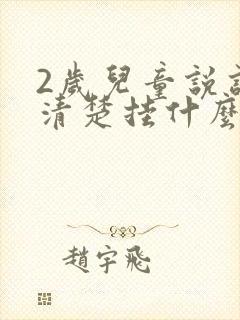 2歲兒童說
清楚掛什麼
趙宇飛